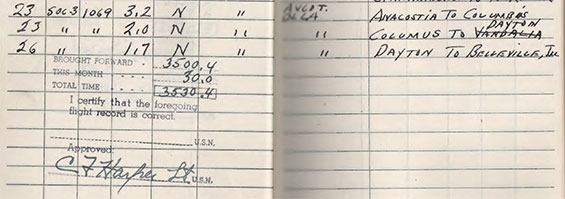 23 SOC3 1069 3.2 N " ANACOSTIA TO COLUMBUS
DAYTON
23 " " 2.0 N " " COLUMUS TO VANDALIA
26 " 1.7 N " " DAYTON TO BELLEVILLE, ILL
BROUGHT FORWARD - - - - 3500.4
THIS MONTH - - - - 30.0
TOTAL TIME - - - - 3530.4
I certify that the foregoing
flight record is correct.
U.S.N.
Approved:
C F Harper Lt. U.S.N.